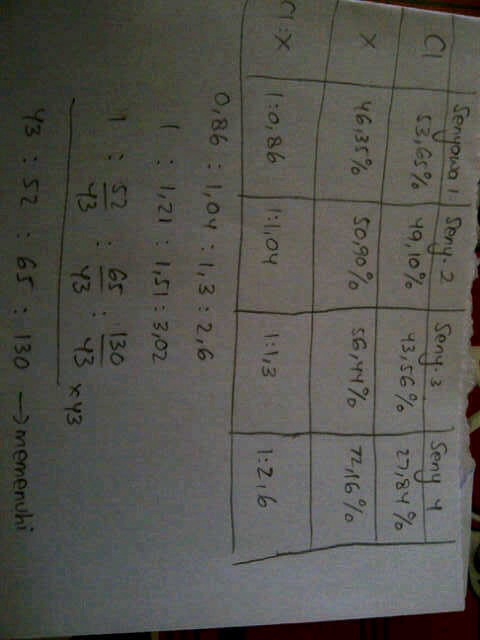 Senyawa 1 Seny. 2 Seny. 3 Seny 4
Cl 53,65% 49,10% 43,56% 27,84%
X 46,35% 50,90% 56,44% 72,16%
Cl:X 1:0,86 1:1,04 1:1,3 1:2,6
0,86 : 1,04 : 1,3 : 2,6
1 : 1,21 : 1,51 : 3,02
1 : 52/43 : 65/43 : 130/43 ×43
43 : 52 : 65 : 130 → memenuhi